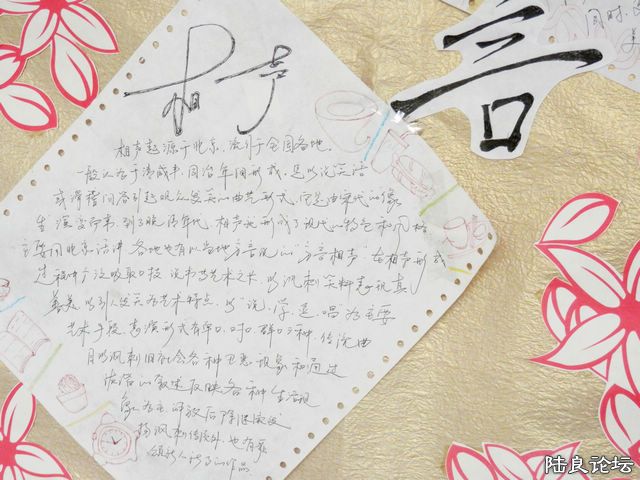 相声
言
同时,
美
相声起源于北京,流行于全国各地。
一般认为于清咸丰、同治年间形成。是以说笑话
或滑稽问答引起观众发笑的曲艺形式。它是由宋代的像
生演变而来。到了晚清年代,相声就形成了现代的特色和风格
主要用北京话讲,各地也有以当地方言说的"方言相声"。在相声形成
过程中广泛吸取口技、说书等艺术之长,以讽刺笑料表现真
善美,以引人发笑为艺术特点,以"说、学、逗、唱"为主要
艺术手段。表演形式有单口、对口、群口三种。传统曲
目以讽刺旧社会各种丑恶现象和通过
诙谐的叙述反映各种生活现
象为主,解放后除继续发
扬讽刺传统外,也有歌
颂新人新事的作品
陆良论坛